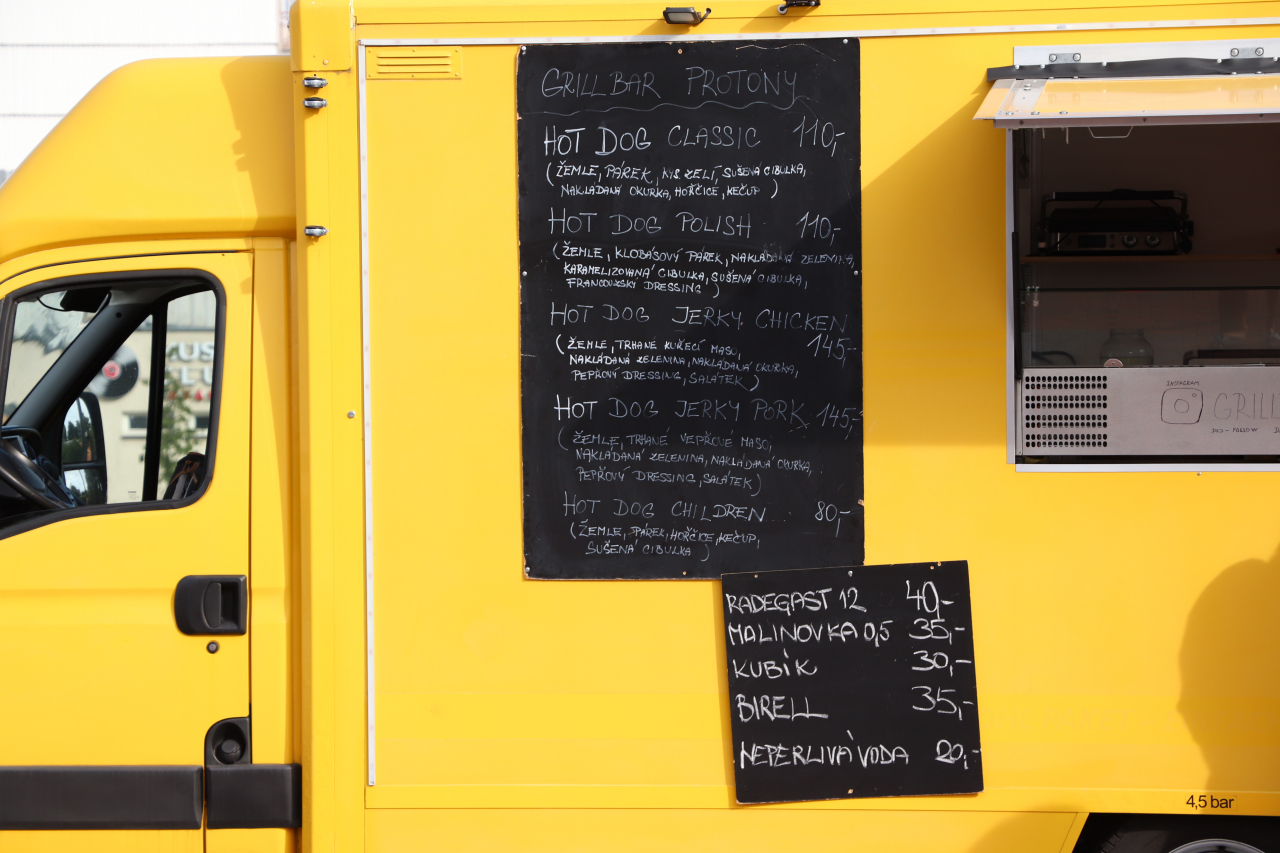 GRILLBAR PROTONY
HOT DOG CLASSIC 110,-
(ŽEMLE, PÁREK, KYS. ZELÍ, SUŠENÁ CIBULKA,
NAKLÁDANÁ OKURKA, HOŘČICE, KEČUP)
HOT DOG POLISH 110,-
(ŽEMLE, KLOBÁSOVÝ PÁREK, NAKLÁDANÁ ZELENINA,
KARAMELIZOVANÁ CIBULKA, SUŠENÁ CIBULKA,
FRANCOUZSKÝ DRESSING)
HOT DOG JERKY CHICKEN
145,-
(ŽEMLE, TRHANÉ KUŘECÍ MASO,
NAKLÁDANÁ ZELENINA, NAKLÁDANÁ OKURKA,
PEPŘOVÝ DRESSING, SALÁTEK)
HOT DOG JERKY PORK 145,-
(ŽEMLE, TRHANÉ VEPŘOVÉ MASO,
NAKLÁDANÁ ZELENINA, NAKLÁDANÁ OKURKA,
PEPŘOVÝ DRESSING, SALÁTEK)
HOT DOG CHILDREN 80,-
(ŽEMLE, PÁREK, HOŘČICE, KEČUP,
SUŠENÁ CIBULKA)
RADEGAST 12 40,-
MALINOVKA 0,5 35,-
KUBÍK 30,-
BIRELL 35,-
NEPERLIVÁ VODA 20,-
INSTAGRAM
GRILL
4,5 bar